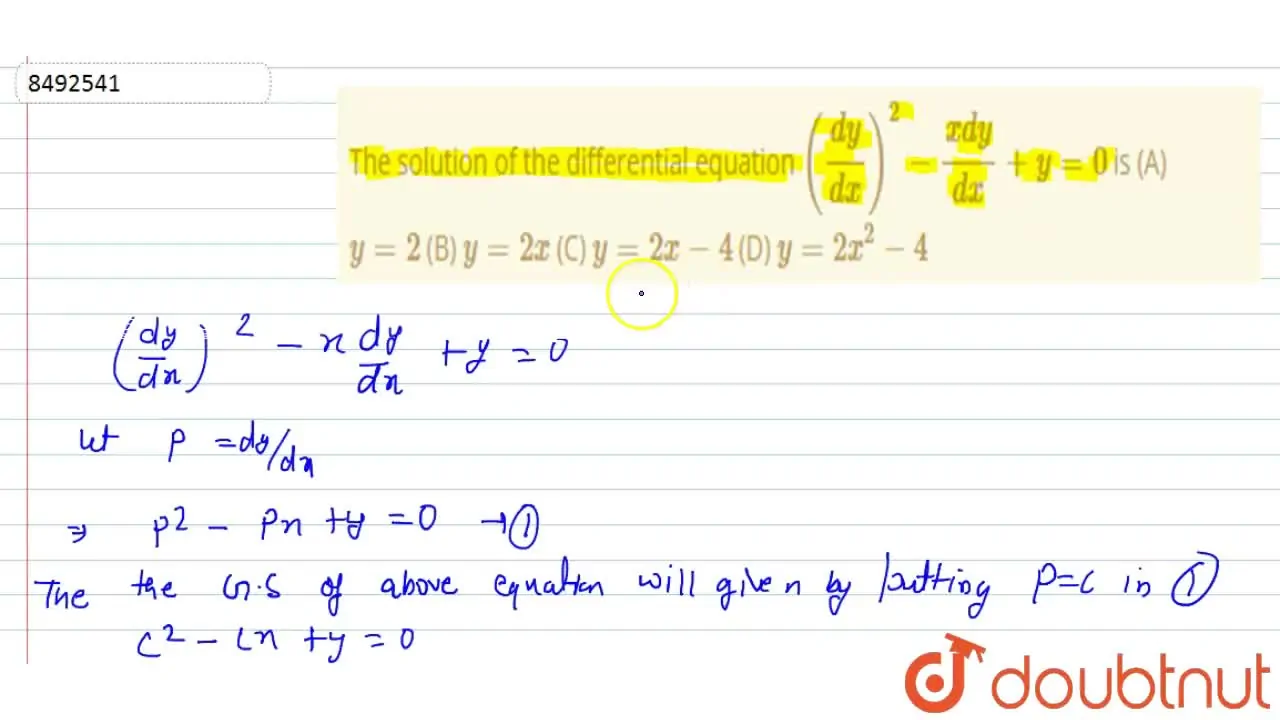 8492541
The solution of the differential equation (dy/dx)² − xdy/dx + y = 0 is (A)
y = 2 (B) y = 2x (C) y = 2x − 4 (D) y = 2x² − 4
(dy/dx)² − x dy/dx + y = 0
let p = dy/dx
⇒ p² − px + y = 0 → ①
The the G.S of above equation will given by putting p=c in ①
c² − cx + y = 0
doubtnut